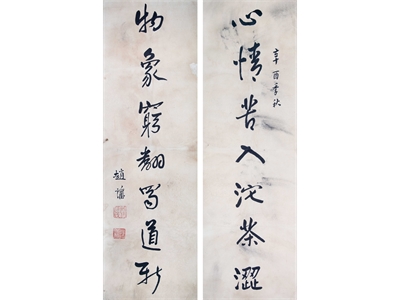 心情苦入沱茶澀
辛酉季秋
物象窮翻罵道新
趙